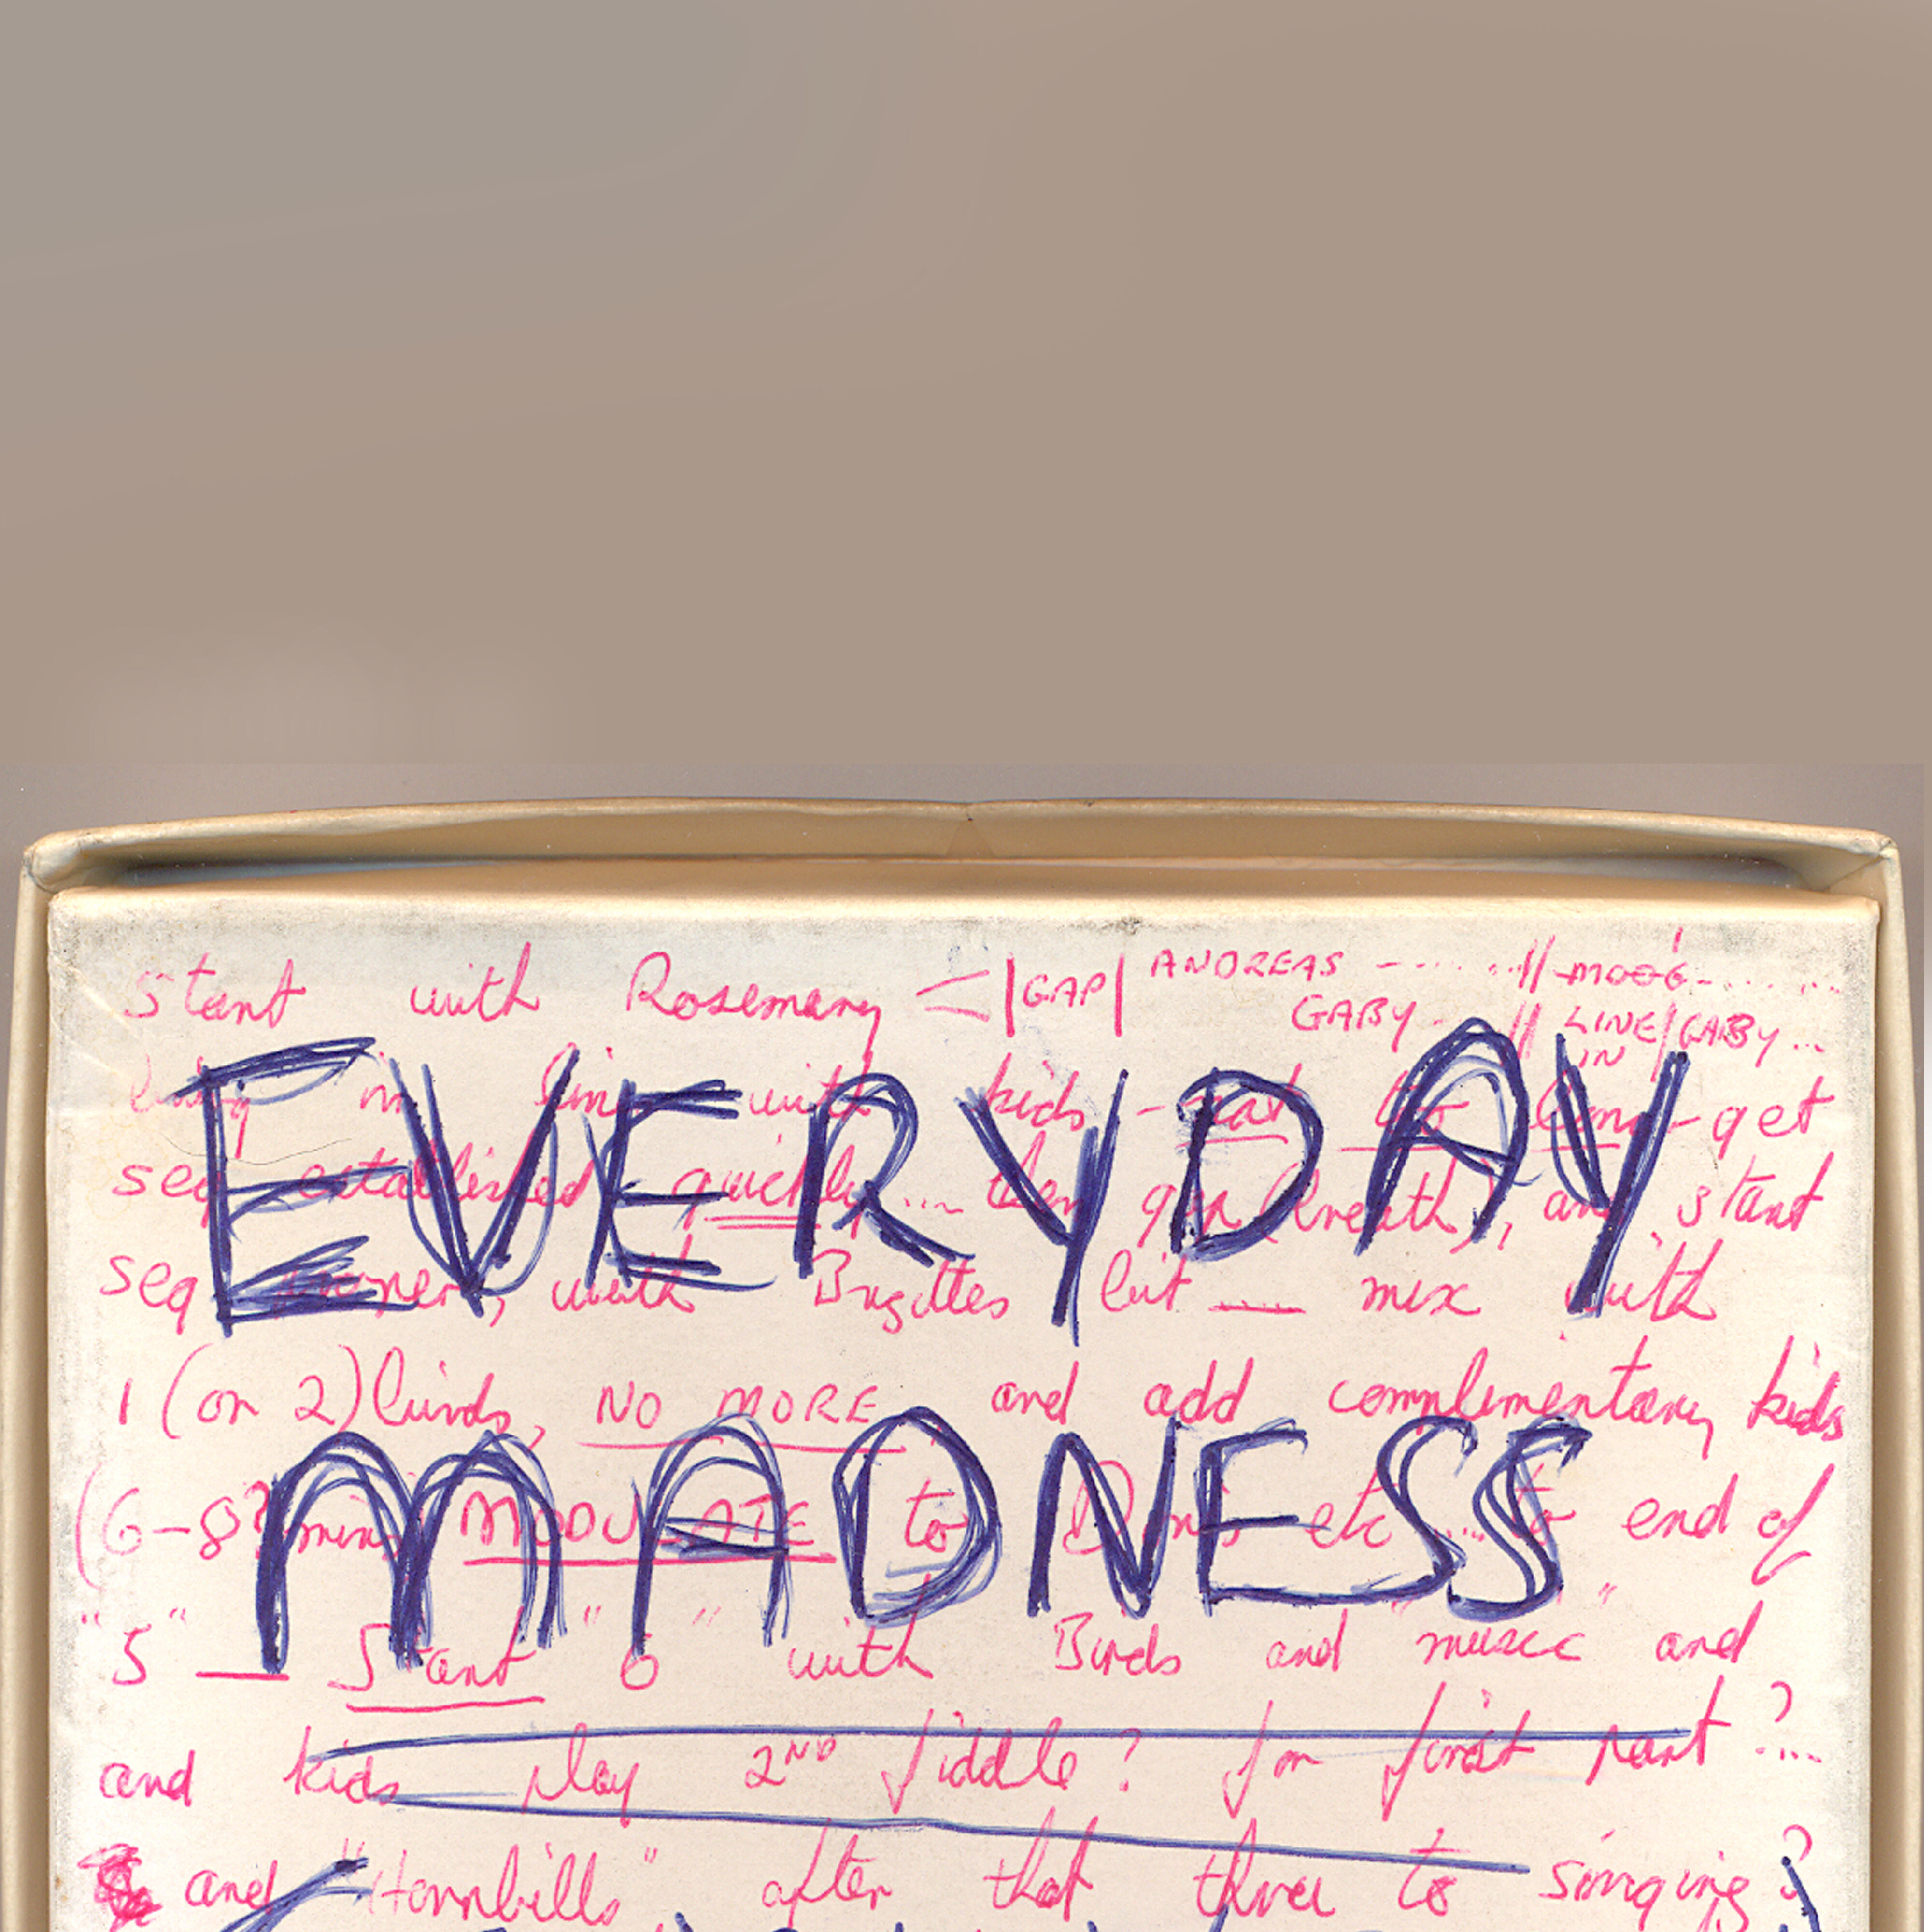 Start with Rosemary |GAP| ANDREAS // MOOG
GABY // LINE IN / GABY...
EVERYDAY
in line with kids - not too long - get
seq established quickly... then gap (breath), and start
seq proper, with Brigittes but — mix with
1 (or 2) birds, NO MORE and add complementary kids
MADNESS
(6-8? mins) MODULATE to etc .... to end of
"5" — Start "6" with Birds and "music" and
and kids play 2ND fiddle? for first part?...
and "Hornbills" after that thru to singing?